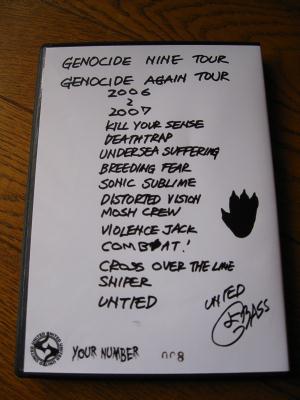 GENOCIDE NINE TOUR
GENOCIDE AGAIN TOUR
2006
2
2007
KILL YOUR SENSE
DEATHTRAP
UNDERSEA SUFFERING
BREEDING FEAR
SONIC SUBLIME
DISTORTED VISION
MOSH CREW
VIOLENCE JACK
COMBAT!
CROSS OVER THE LINE
SNIPER
UNTIED
UNITED
BASS
YOUR NUMBER 008